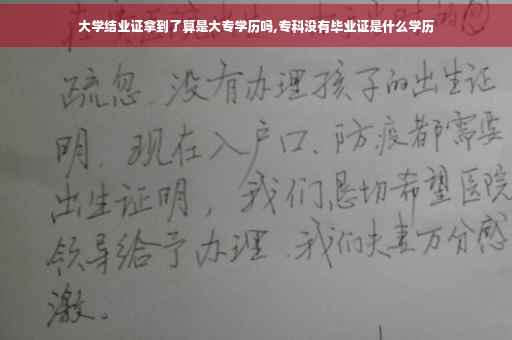 大学结业证拿到了算是大专学历吗,专科没有毕业证是什么学历
疏忽、没有办理孩子的出生证
明、现在入户口、防疫都需要
出生证明，我们恳切希望医院
领导给予办理、我们夫妻万分感
激。